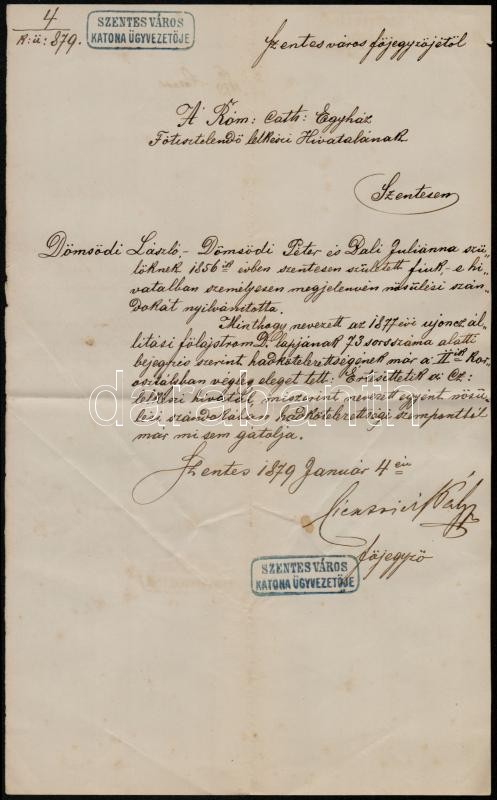 4
K: ü: 879.
SZENTES VÁROS
KATONA ÜGYVEZETŐJE
Szentes város főjegyzőjétől
A Róm: Cath: Egyház
Főtisztelendő lelkészi Hivatalának
Szentesen
Dömsödi László,- Dömsödi Péter és Dali Juliánna szü-
lőknek 1856ik évben szentesen született fiuk,- e hi-
vatalban személyesen megjelenvén nősülési szán-
dokát nyilvánította.
Minthogy nevezett az 1877 évi ujoncz ál-
lítási fölajstrom D. lapjának 73 sorszáma alatti
bejegzés szerint hadkötelezettségének már a IIik kor-
osztályban végleg eleget tett. Értesíttetik a Cz:
lelkészi hivatal, miszerint nevezett egyént nősü-
lési szándokában hadkötelezettségi szempontból
mar mi sem gátolja.
Szentes 1879 Január 4én
főjegyző
SZENTES VÁROS
KATONA ÜGYVEZETŐJE
darabanth